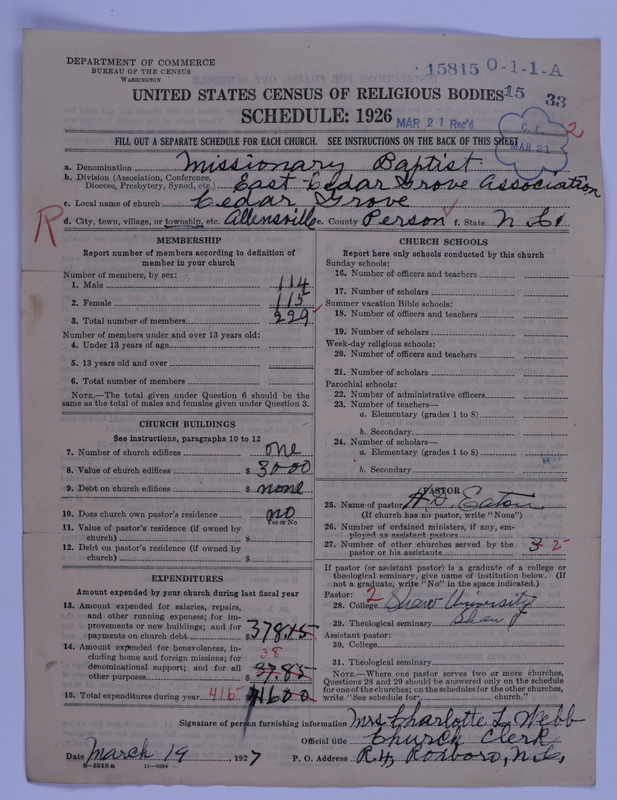 DEPARTMENT OF COMMERCE
BUREAU OF THE CENSUS
WASHINGTON
15815 0-1-1-A
UNITED STATES CENSUS OF RELIGIOUS BODIES
15 33
SCHEDULE: 1926
MAR 21 Rec'd
FILL OUT A SEPARATE SCHEDULE FOR EACH CHURCH. SEE INSTRUCTIONS ON THE BACK OF THIS SHEET
C. C. 2
MAR 21
a. Denomination Missionary Baptist
b. Division (Association, Conference, Diocese, Presbytery, Synod, etc.) East Cedar Grove Association
c. Local name of church Cedar Grove
R
d. City, town, village, or township, etc. Allensville e. County Person f. State N.C.
MEMBERSHIP
Report number of members according to definition of member in your church
Number of members, by sex:
1. Male 114
2. Female 115
3. Total number of members 229
Number of members under and over 13 years old:
4. Under 13 years of age
5. 13 years old and over
6. Total number of members
NOTE.—The total given under Question 6 should be the same as the total of males and females given under Question 3.
CHURCH BUILDINGS
See instructions, paragraphs 10 to 12
7. Number of church edifices one
8. Value of church edifices $ 3000
9. Debt on church edifices $ none
10. Does church own pastor's residence no
Yes or No
11. Value of pastor's residence (if owned by church) $
12. Debt on pastor's residence (if owned by church) $
EXPENDITURES
Amount expended by your church during last fiscal year
13. Amount expended for salaries, repairs, and other running expenses; for improvements or new buildings; and for payments on church debt $ 378.15
14. Amount expended for benevolences, including home and foreign missions; for denominational support; and for all other purposes 38 37.85
15. Total expenditures during year 416 41600
CHURCH SCHOOLS
Report here only schools conducted by this church
Sunday schools:
16. Number of officers and teachers
17. Number of scholars
Summer vacation Bible schools:
18. Number of officers and teachers
19. Number of scholars
Week-day religious schools:
20. Number of officers and teachers
21. Number of scholars
Parochial schools:
22. Number of administrative officers
23. Number of teachers—
a. Elementary (grades 1 to 8)
b. Secondary
24. Number of scholars—
a. Elementary (grades 1 to 8)
b. Secondary
PASTOR
25. Name of pastor A.D. Eaton
(If church has no pastor, write "None")
26. Number of ordained ministers, if any, employed as assistant pastors
27. Number of other churches served by the pastor or his assistants 3 2
If pastor (or assistant pastor) is a graduate of a college or theological seminary, give name of institution below. (If not a graduate, write "No" in the space indicated.)
Pastor: 2
28. College Shaw University
29. Theological seminary Shaw
Assistant pastor:
30. College
31. Theological seminary
NOTE.—Where one pastor serves two or more churches, Questions 28 and 29 should be answered only on the schedule for one of the churches; on the schedules for the other churches, write "See schedule for church."
Signature of person furnishing information Mrs. Charlotte L. Webb
Official title Church Clerk
Date March 19, 1927 P. O. Address R.4, Roxboro, N.C.
8—5518 a 11—9054